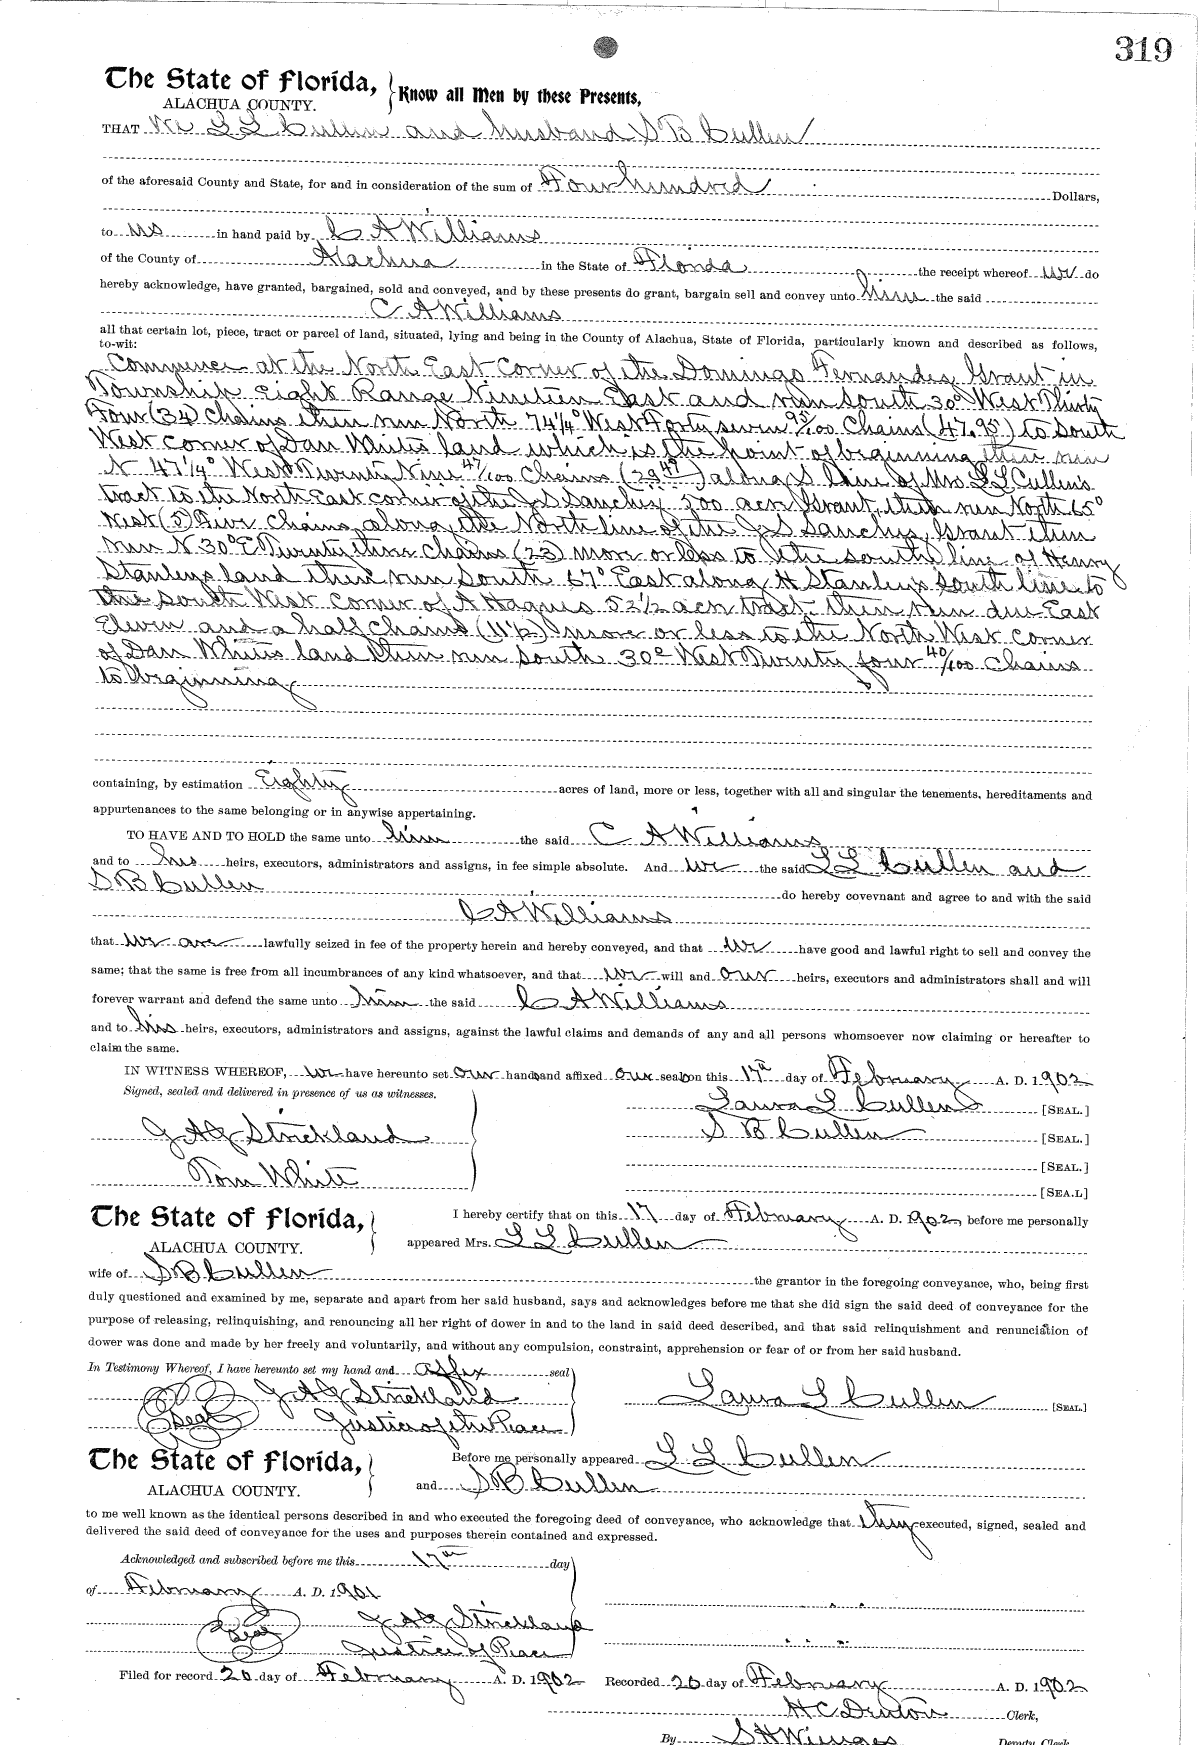 319
The State of Florida,
ALACHUA COUNTY.
Know all Men by these Presents,
THAT We L L Cullen and husband S B Cullen
of the aforesaid County and State, for and in consideration of the sum of Four hundred Dollars,
to us in hand paid by C A Williams
of the County of Alachua in the State of Florida the receipt whereof we do
hereby acknowledge, have granted, bargained, sold and conveyed, and by these presents do grant, bargain sell and convey unto him the said
C A Williams
all that certain lot, piece, tract or parcel of land, situated, lying and being in the County of Alachua, State of Florida, particularly known and described as follows,
to-wit:
Commence at the North East Corner of the Domingo Fernandes Grant in
Township Eight Range Nineteen East and run South 30° West Thirty
Four (34) Chains then run North 74¼° West Forty seven 95/100 Chains (47.95) to South
West corner of Dan Whites land which is the point of beginning then run
N 47¼° West Twenty Nine 47/100 Chains (29 47) along S line of Mrs L L Cullens
tract to the North East corner of the J S Sanchez 500 acre Grant, then run North 65°
West (5) Five Chains along the North line of the J S Sanchez Grant then
run N 30° E Twenty three Chains (23) more or less to the south line of Henry
Stanleys land then run South 67° East along H Stanleys South line to
the South West corner of A Hagues 52½ acre tract, then run due East
Eleven and a half Chains (11½) more or less to the North West corner
of Dan Whites land then run South 30° West Twenty four 40/100 Chains
to beginning
containing, by estimation Eighty acres of land, more or less, together with all and singular the tenements, hereditaments and
appurtenances to the same belonging or in anywise appertaining.
TO HAVE AND TO HOLD the same unto him the said C A Williams
and to his heirs, executors, administrators and assigns, in fee simple absolute. And we the said L L Cullen and
S B Cullen do hereby covevnant and agree to and with the said
C A Williams
that we are lawfully seized in fee of the property herein and hereby conveyed, and that we have good and lawful right to sell and convey the
same; that the same is free from all incumbrances of any kind whatsoever, and that we will and our heirs, executors and administrators shall and will
forever warrant and defend the same unto him the said C A Williams
and to his heirs, executors, administrators and assigns, against the lawful claims and demands of any and all persons whomsoever now claiming or hereafter to
claim the same.
IN WITNESS WHEREOF, we have hereunto set our hands and affixed our seals on this 17th day of February A. D. 1902
Signed, sealed and delivered in presence of us as witnesses.
Laura L Cullen [SEAL.]
J A G Strickland
S B Cullen [SEAL.]
[SEAL.]
Tom White
[SEA.L]
The State of Florida,
ALACHUA COUNTY.
I hereby certify that on this 17 day of February A. D. 1902, before me personally
appeared Mrs. L L Cullen
wife of S B Cullen the grantor in the foregoing conveyance, who, being first
duly questioned and examined by me, separate and apart from her said husband, says and acknowledges before me that she did sign the said deed of conveyance for the
purpose of releasing, relinquishing, and renouncing all her right of dower in and to the land in said deed described, and that said relinquishment and renunciation of
dower was done and made by her freely and voluntarily, and without any compulsion, constraint, apprehension or fear of or from her said husband.
In Testimony Whereof, I have hereunto set my hand and affix seal
J A G Strickland
Laura L Cullen [SEAL.]
Seal Justice of the Peace
The State of Florida,
ALACHUA COUNTY.
Before me personally appeared L L Cullen
and S B Cullen
to me well known as the identical persons described in and who executed the foregoing deed of conveyance, who acknowledge that they executed, signed, sealed and
delivered the said deed of conveyance for the uses and purposes therein contained and expressed.
Acknowledged and subscribed before me this 17th day
of February A. D. 1901
Seal J A G Strickland
Justice of Peace
Filed for record 20 day of February A. D. 1902 Recorded 20 day of February A. D. 1902
H C Denton Clerk,
By S H Wienges Deputy Clerk